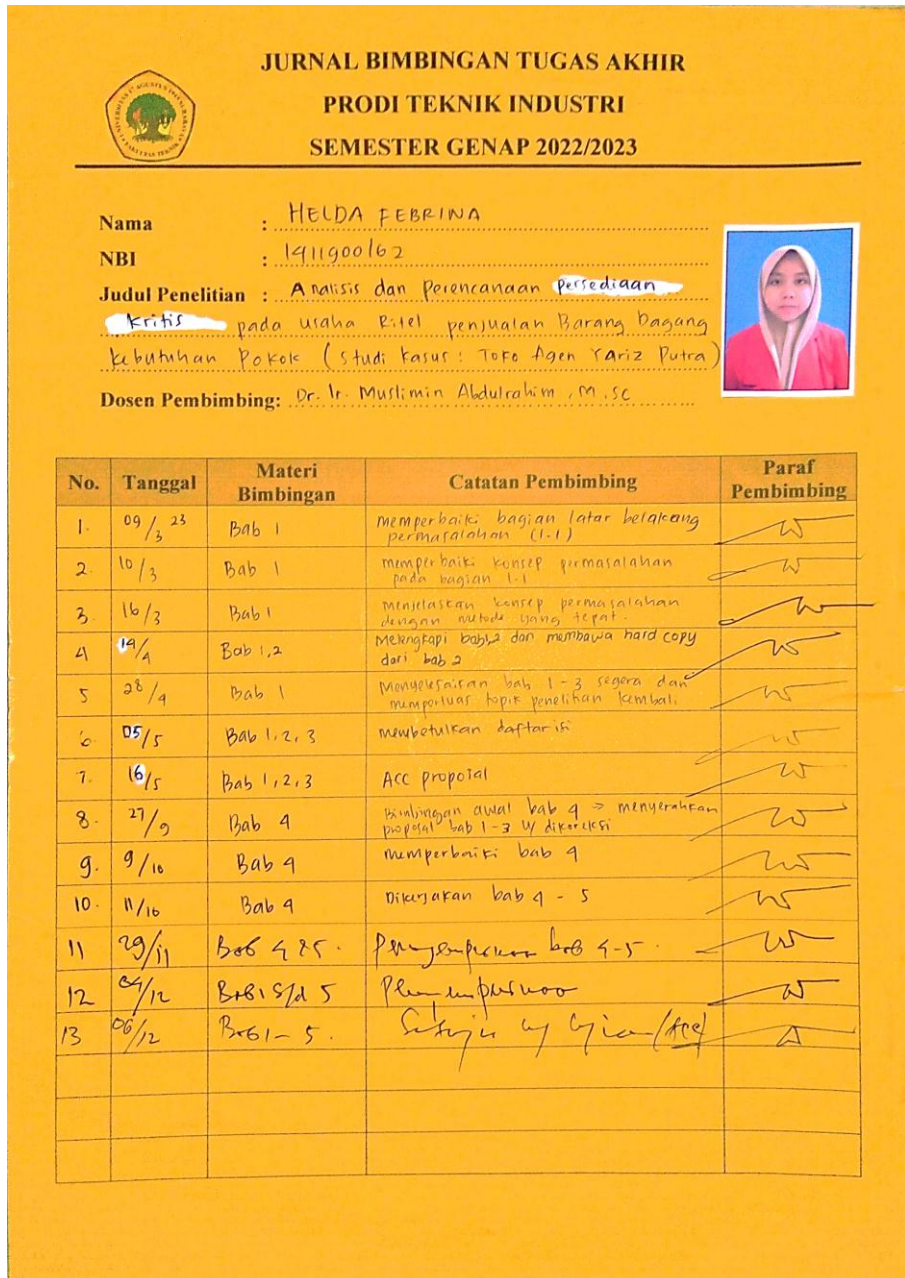 JURNAL BIMBINGAN TUGAS AKHIR
PRODI TEKNIK INDUSTRI
SEMESTER GENAP 2022/2023
Nama : HELDA FEBRINA
NBI : 1411900162
Judul Penelitian : Analisis dan Perencanaan Persediaan
Kritis pada usaha Ritel penjualan Barang Dagang
kebutuhan Pokok (Studi Kasus: Toko Agen Yariz Putra)
Dosen Pembimbing: Dr. Ir. Muslimin Abdulrahim, M.SC
No. Tanggal Materi Bimbingan Catatan Pembimbing Paraf Pembimbing
1. 09/3 23 Bab 1 memperbaiki bagian latar belakang
permasalahan (1.1)
2. 10/3 Bab 1 memperbaiki konsep permasalahan
pada bagian 1.1
3. 16/3 Bab 1 menjelaskan konsep permasalahan
dengan metode yang tepat.
4 14/4 Bab 1,2 Melengkapi bab 1,2 dan membawa hard copy
dari bab 2
5 28/4 Bab 1 Menyelesaikan bab 1-3 segera dan
memperluas topik penelitian kembali
6. 05/5 Bab 1,2,3 membetulkan daftar isi
7. 16/5 Bab 1,2,3 Acc proposal
8. 27/9 Bab 4 Bimbingan awal bab 4 → menyerahkan
proposal bab 1-3 u/ dikoreksi
9. 9/10 Bab 4 memperbaiki bab 4
10. 11/10 Bab 4 Dikerjakan bab 4 - 5
11 29/11 Bab 4 & 5. Penyempurnaan bab 4-5.
12 04/12 Bab 1 s/d 5
13 06/12 Bab 1-5. Setuju u/ Ujian/Acc